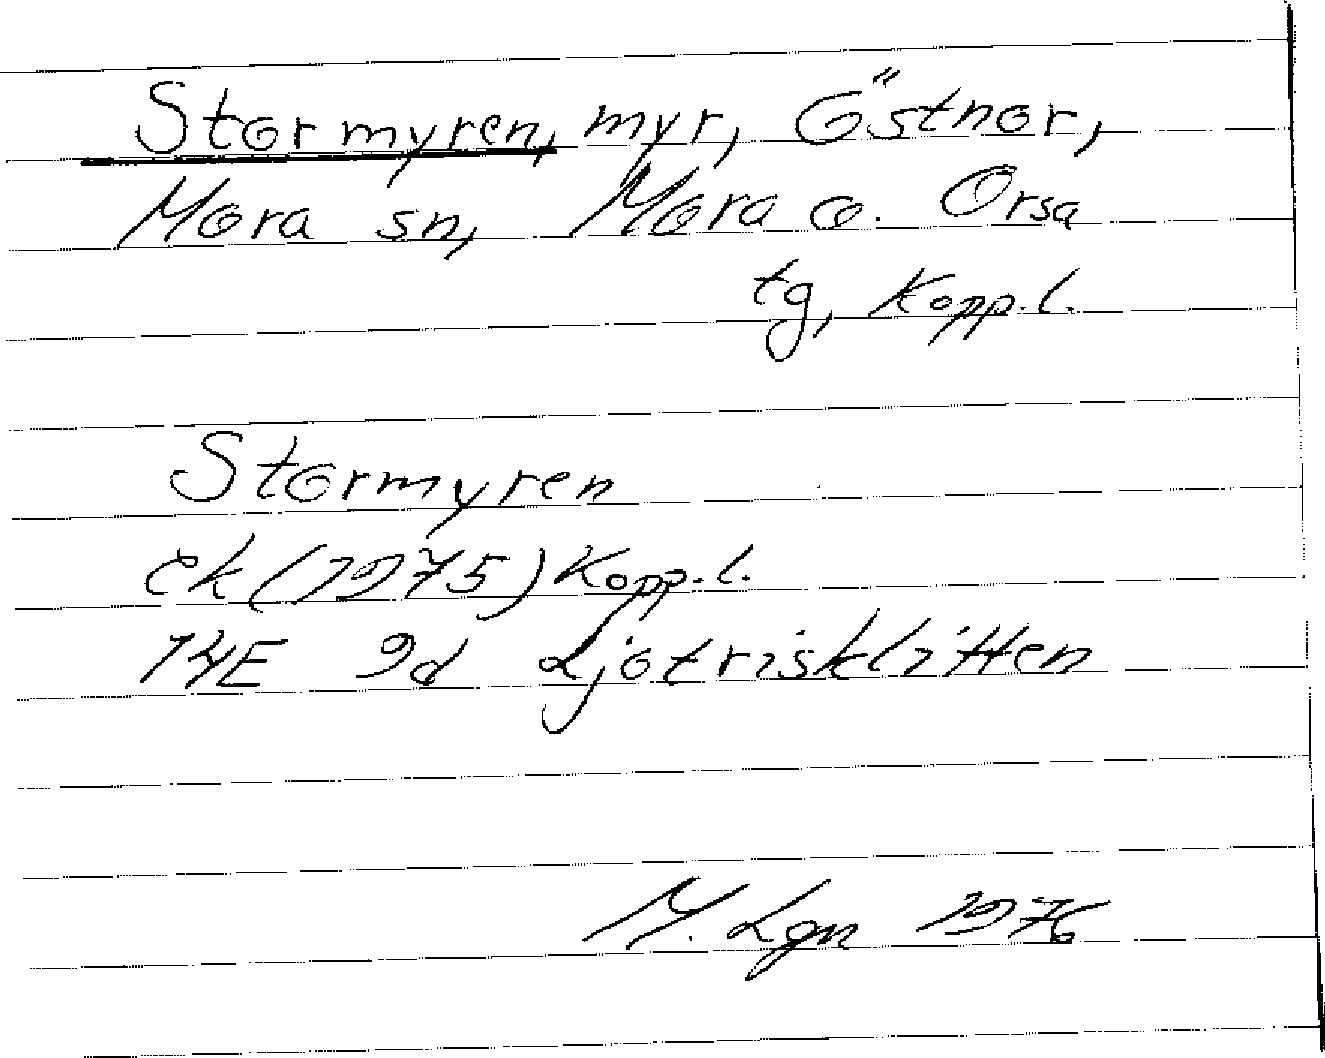 Stormyren, myr, Östnor,
Mora sn, Mora o. Orsa
tg, Kopp.l.
Stormyren
ek (1975) Kopp.l.
14E 9d Ljotrisklitten
M. Lgn 1976